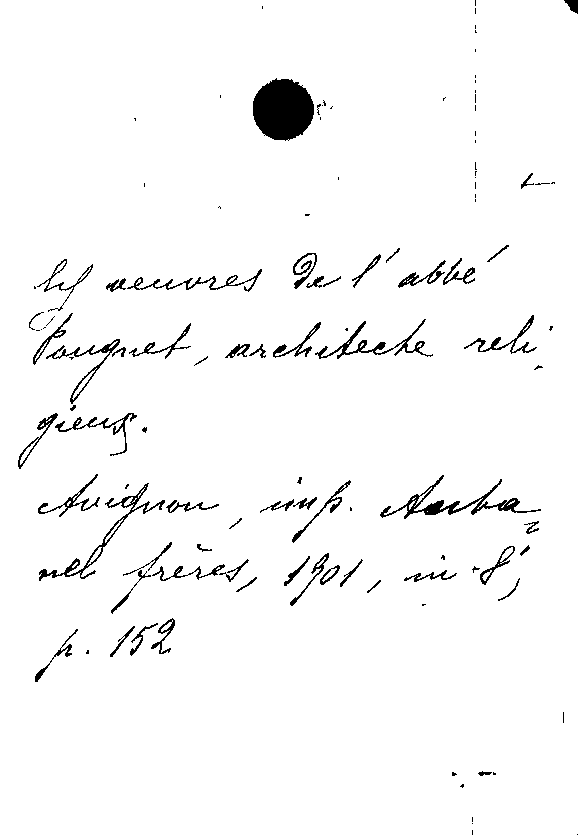 les oeuvres de l'abbé
Pougnet, architecte reli-
gieux.
Avignon, imp. Auba-
nel frères, 1901, in-8°,
p. 152